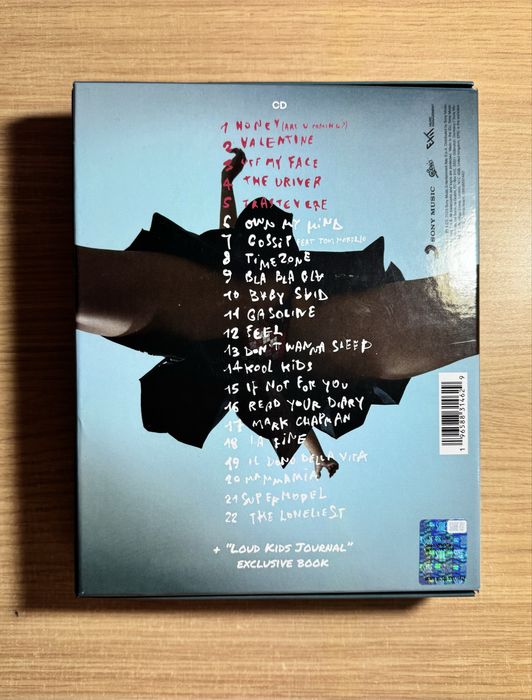 CD
1 HONEY (ARE U COMING?)
2 VALENTINE
3 OFF MY FACE
4 THE DRIVER
5 TRASTEVERE
6 OWN MY MIND
7 GOSSIP FEAT TOM MORELLO
8 TIMEZONE
9 BLA BLA BLA
10 BABY SAID
11 GASOLINE
12 FEEL
13 DON'T WANNA SLEEP
14 KOOL KIDS
15 IF NOT FOR YOU
16 READ YOUR DIARY
17 MARK CHAPMAN
18 LA FINE
19 IL DONO DELLA VITA
20 MAMMAMIA
21 SUPERMODEL
22 THE LONELIEST
+ "LOUD KIDS JOURNAL"
EXCLUSIVE BOOK
SONY MUSIC
1 96588 31462 9